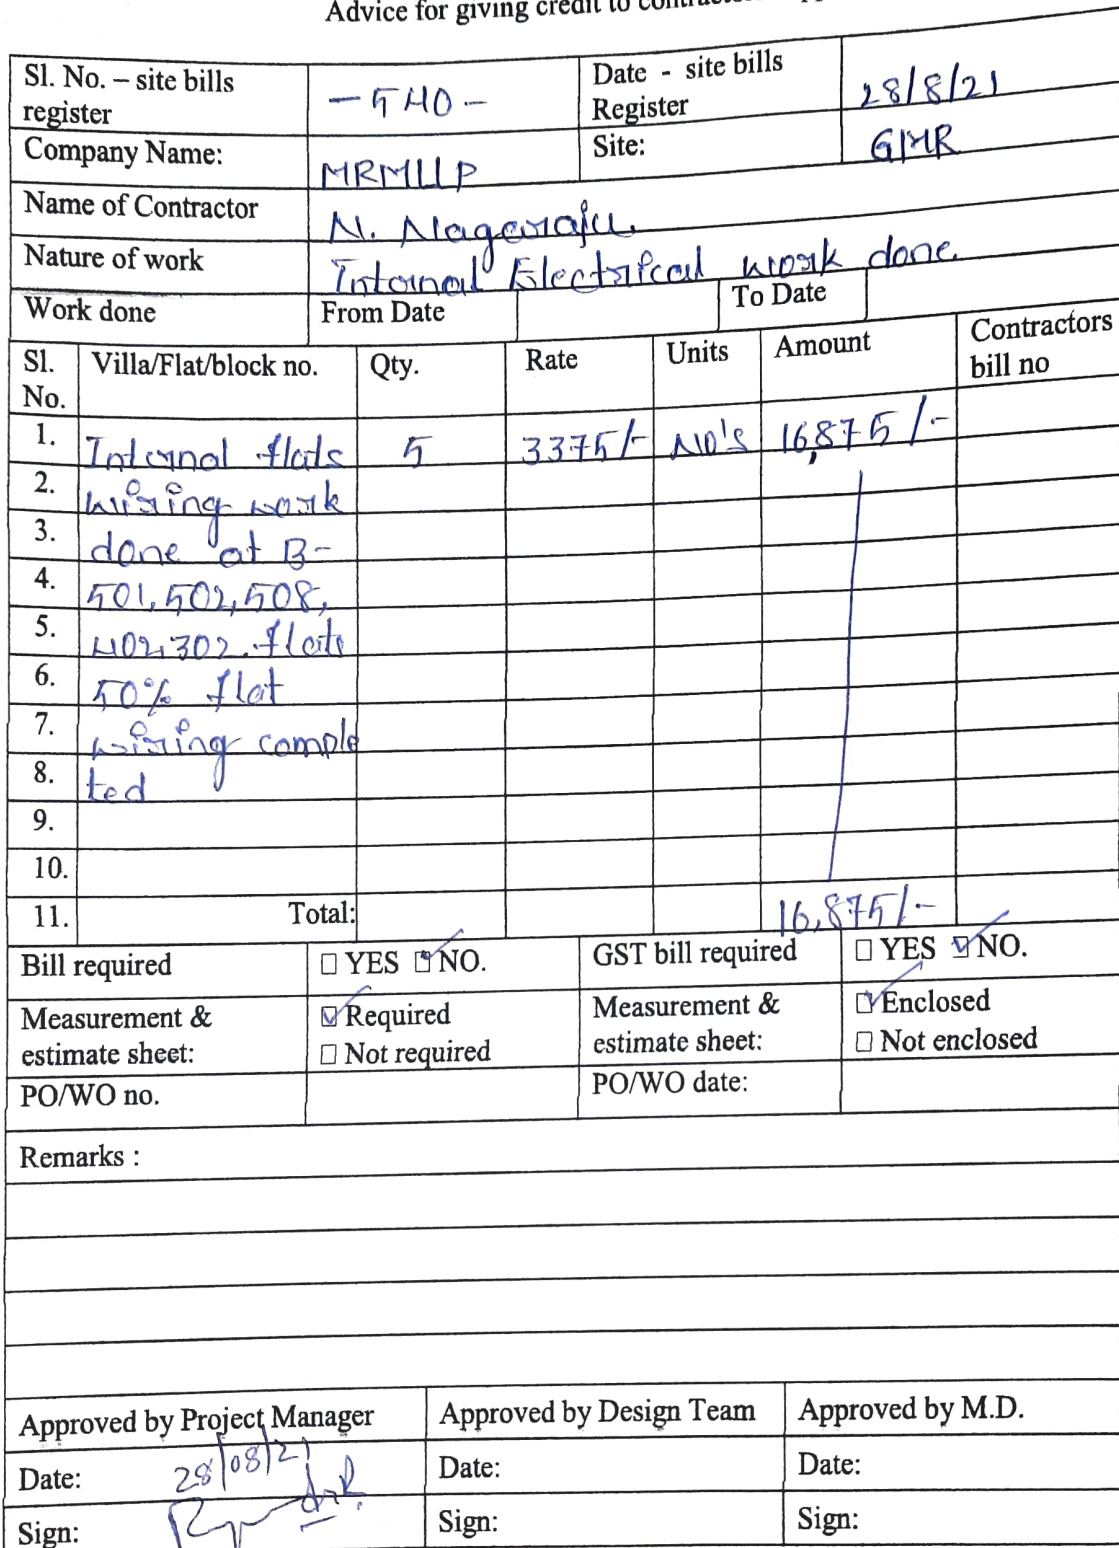 Advice for giving credit to
Sl. No. – site bills register -540- Date - site bills Register 28/8/21
Company Name: MRMLLP Site: GMR
Name of Contractor N. Nagaraju.
Nature of work Internal Electrical work done
Work done From Date To Date
Sl. No. Villa/Flat/block no. Qty. Rate Units Amount Contractors bill no
1. Internal flats 5 3375/- NO's 16,875/-
2. wiring work
3. done at B-
4. 501, 502, 508,
5. 402, 302. flats
6. 50% flat
7. wiring comple
8. ted
9.
10.
11. Total: 16,875/-
Bill required □ YES ☑ NO. GST bill required □ YES ☑ NO.
Measurement & estimate sheet: ☑ Required □ Not required Measurement & estimate sheet: ☑ Enclosed □ Not enclosed
PO/WO no. PO/WO date:
Remarks :
Approved by Project Manager Approved by Design Team Approved by M.D.
Date: 28/08/21 Date: Date:
Sign: Sign: Sign: